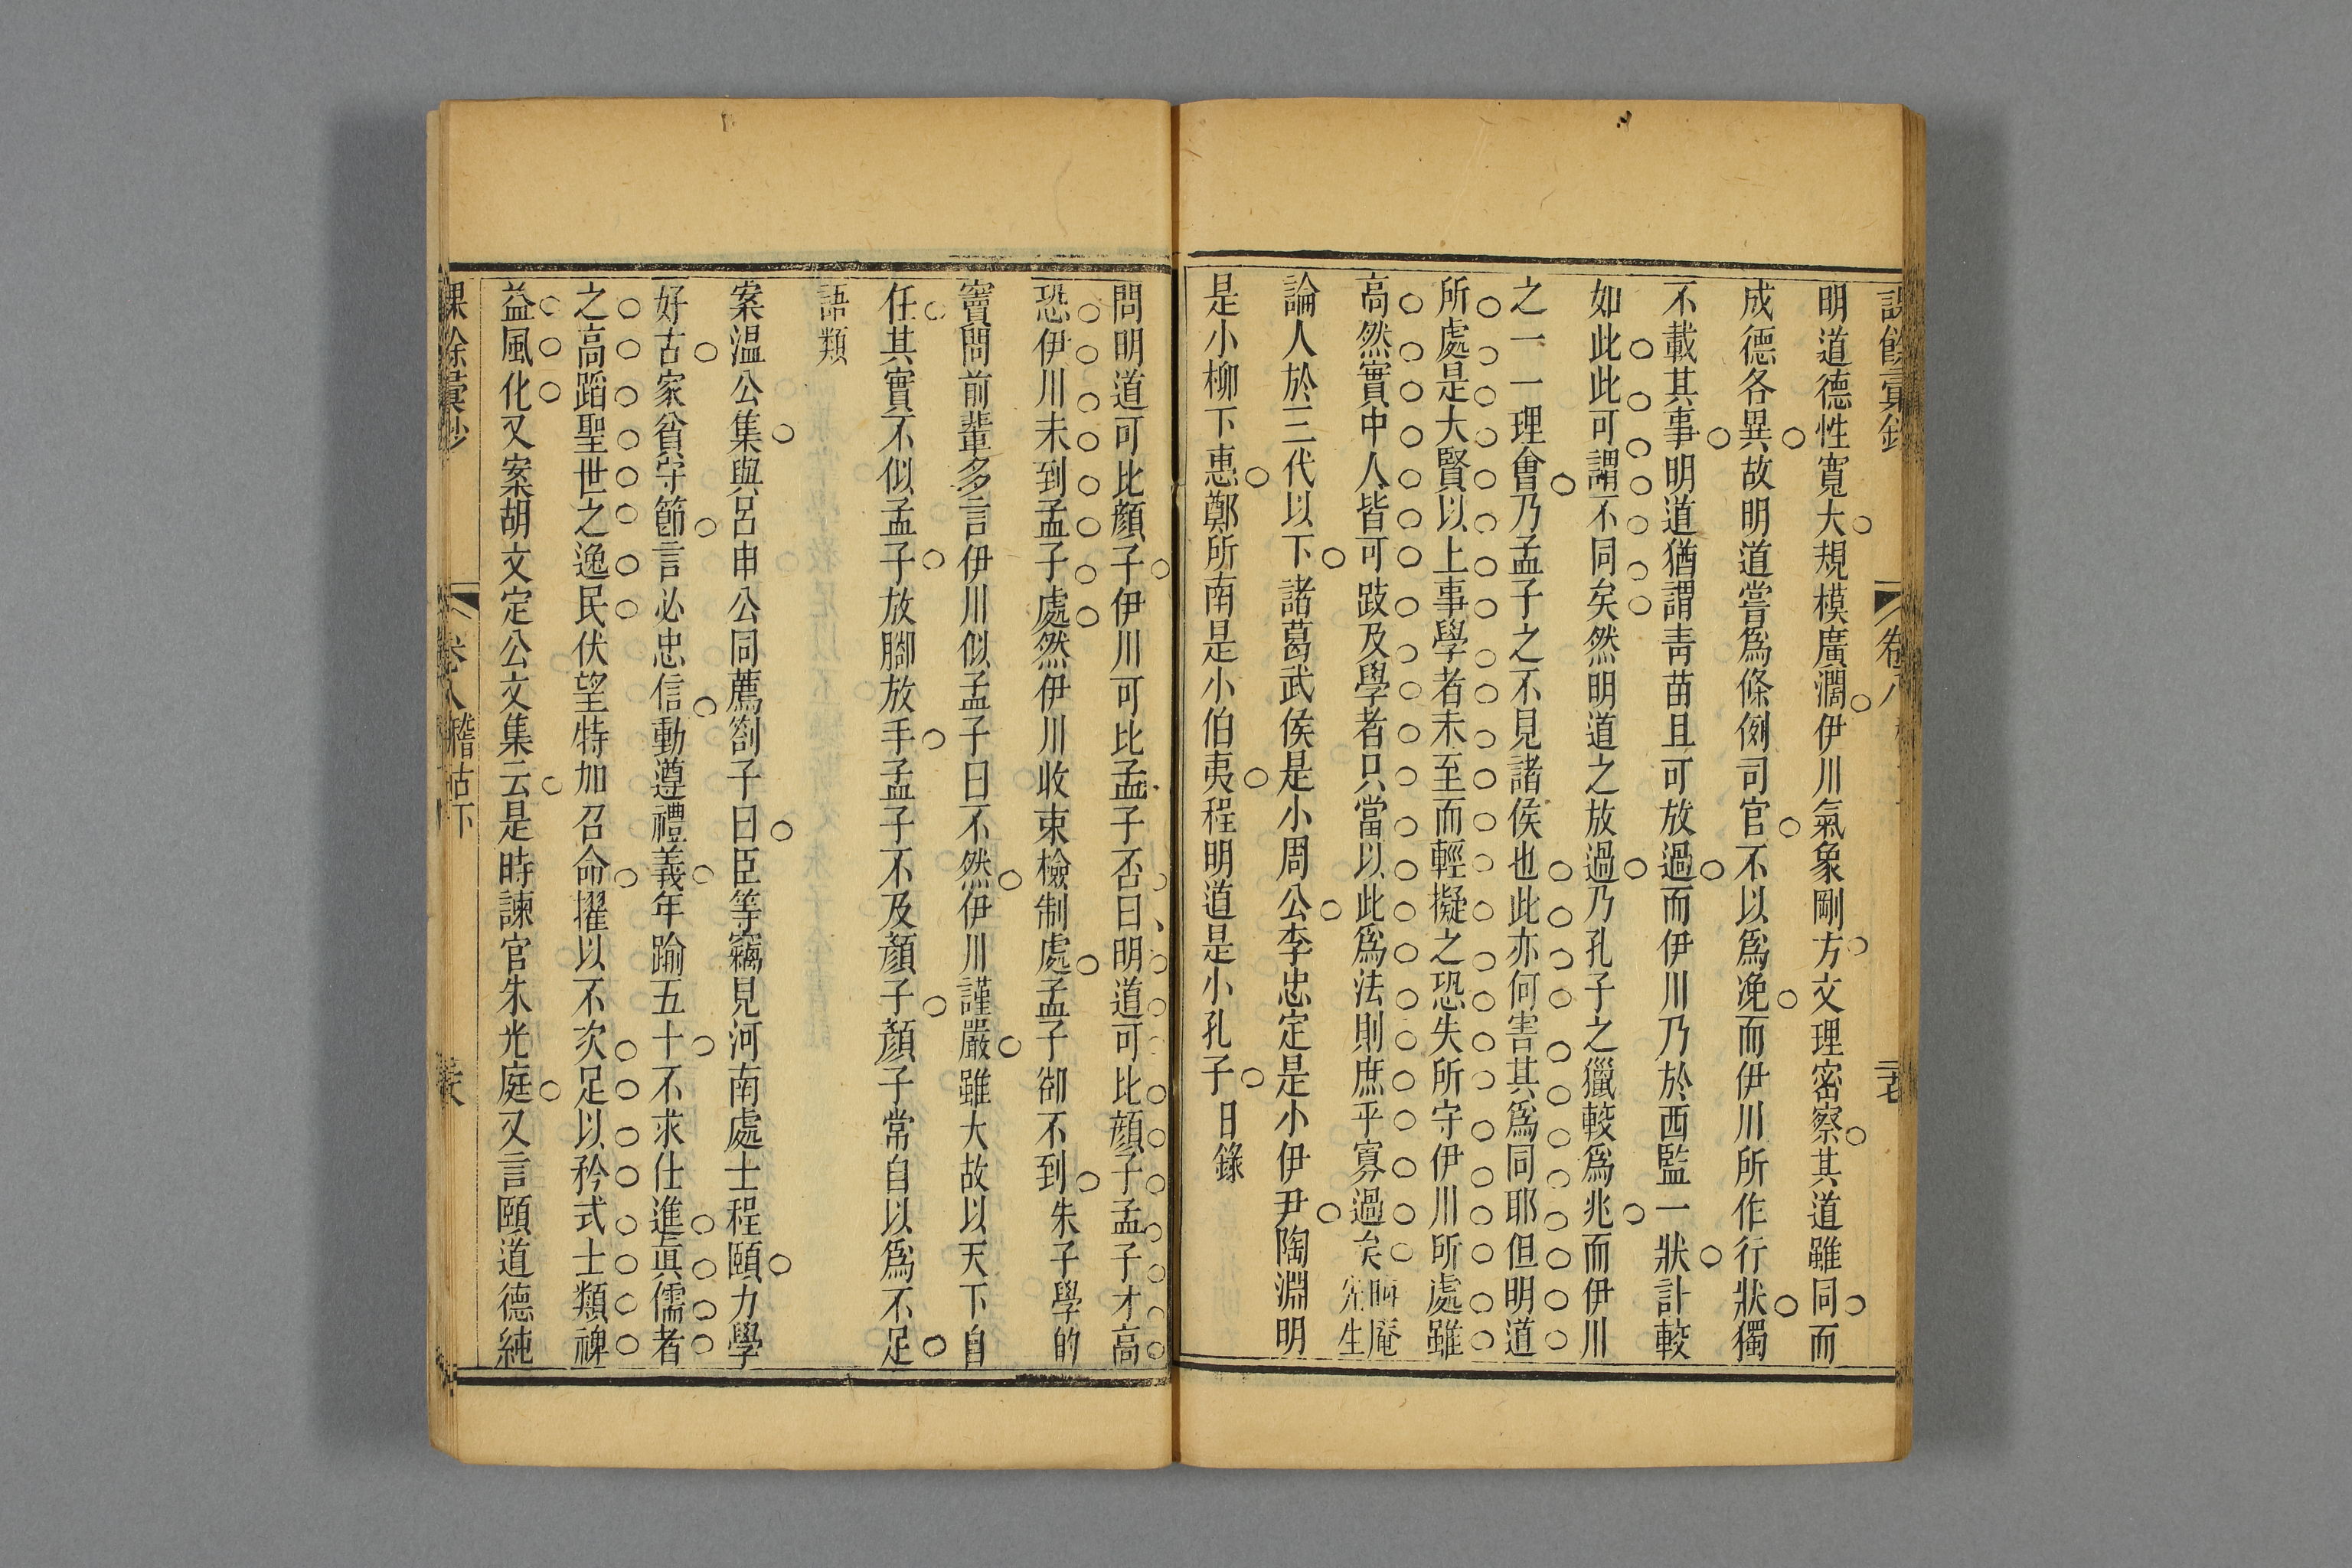 明道德性寬大規模廣濶伊川氣象剛方文理密察其道雖同而
成德各異故明道嘗爲條例司官不以爲浼而伊川所作行狀獨
不載其事明道猶謂靑苗且可放過而伊川乃於西監一狀計較
如此此可謂不同矣然明道之放過乃孔子之獵較爲兆而伊川
之一一理會乃孟子之不見諸侯也此亦何害其爲同耶但明道
所處是大賢以上事學者未至而輕擬之恐失所守伊川所處雖
高然實中人皆可跂及學者只當以此爲法則庶乎寡過矣晦庵先生
論人於三代以下諸葛武侯是小周公李忠定是小伊尹陶淵明
是小柳下惠鄭所南是小伯夷程明道是小孔子日錄
問明道可比顏子伊川可比孟子否曰明道可比顏子孟子才高
恐伊川未到孟子處然伊川收束檢制處孟子卻不到朱子學的
竇問前輩多言伊川似孟子曰不然伊川謹嚴雖大故以天下自
任其實不似孟子放腳放手孟子不及顏子顏子常自以爲不足
語類
案温公集與呂申公同薦劄子曰臣等竊見河南處士程頤力學
好古家貧守節言必忠信動遵禮義年踰五十不求仕進眞儒者
之高蹈聖世之逸民伏望特加召命擢以不次足以矜式士類裨
益風化又案胡文定公文集云是時諫官朱光庭又言頤道德純
課餘彙鈔
卷八 稽古下